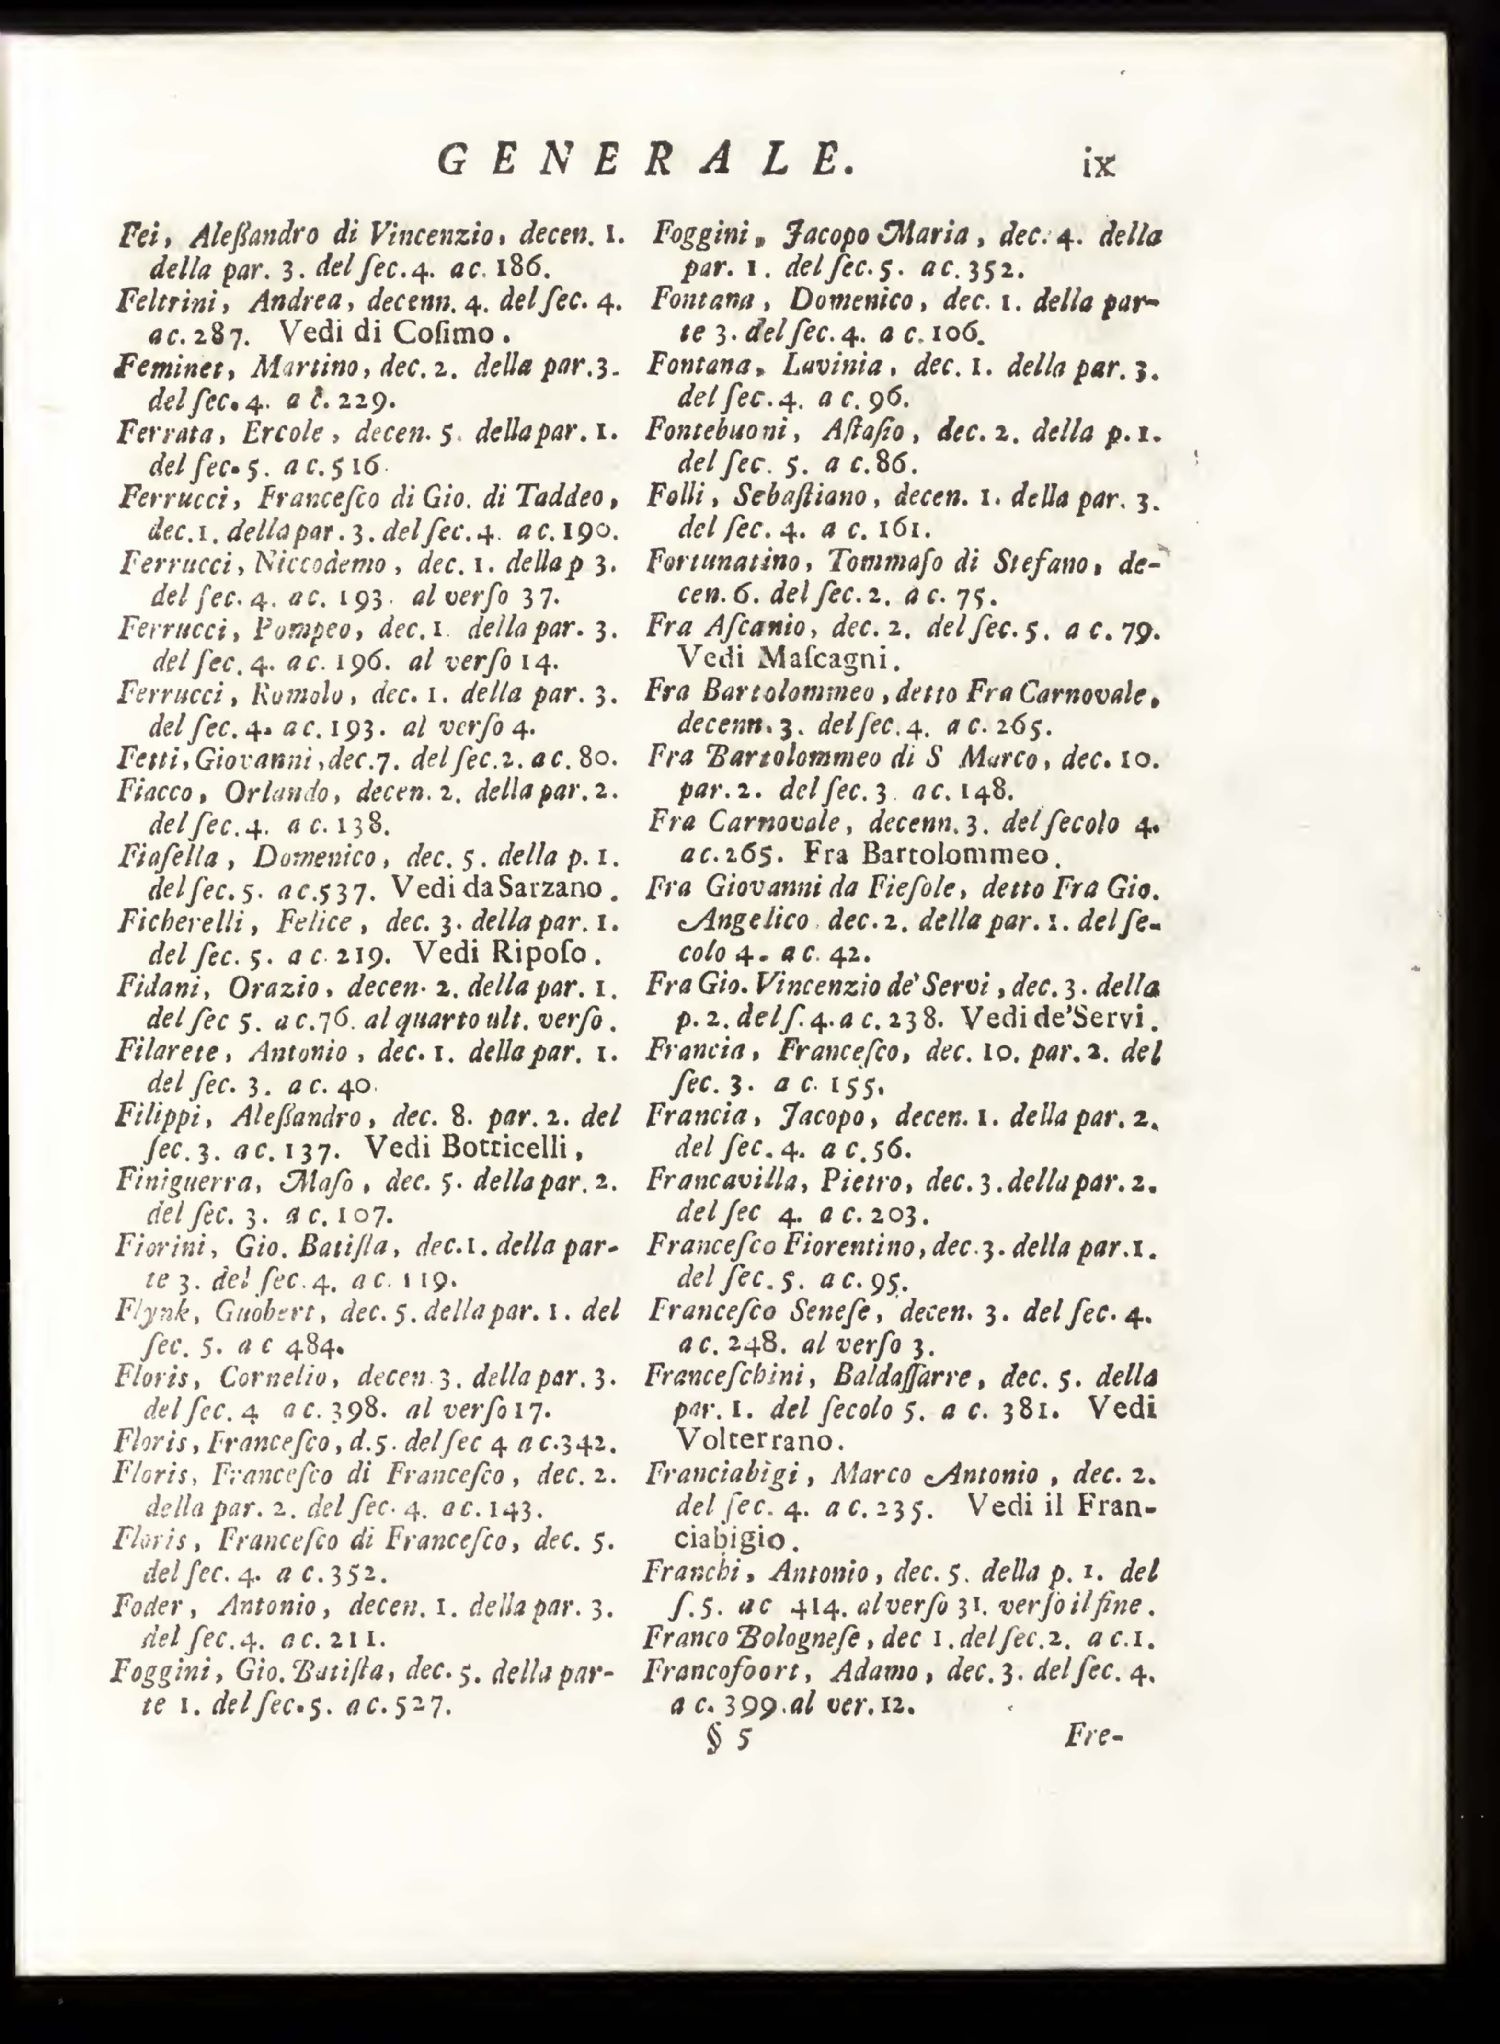 GENERALE. ix
Fei, Aleßandro di Vincenzio, decen. 1.
della par. 3. del ſec. 4. ac. 186.
Feltrini, Andrea, decenn. 4. del ſec. 4.
ac. 287. Vedi di Coſimo.
Feminet, Martino, dec. 2. della par. 3.
del ſec. 4. a c. 229.
Ferrata, Ercole, decen. 5. della par. 1.
del ſec. 5. a c. 516.
Ferrucci, Franceſco di Gio. di Taddeo,
dec. 1. della par. 3. del ſec. 4. a c. 190.
Ferrucci, Niccodemo, dec. 1. della p 3.
del ſec. 4. ac. 193. al verſo 37.
Ferrucci, Pompeo, dec. 1. della par. 3.
del ſec. 4. ac. 196. al verſo 14.
Ferrucci, Romolo, dec. 1. della par. 3.
del ſec. 4. ac. 193. al verſo 4.
Fetti, Giovanni, dec. 7. del ſec. 2. ac. 80.
Fiacco, Orlando, decen. 2. della par. 2.
del ſec. 4. a c. 138.
Fiaſella, Domenico, dec. 5. della p. 1.
del ſec. 5. ac. 537. Vedi da Sarzano.
Ficherelli, Felice, dec. 3. della par. 1.
del ſec. 5. a c. 219. Vedi Ripoſo.
Fidani, Orazio, decen. 2. della par. 1.
del ſec 5. a c. 76. al quarto ult. verſo.
Filarete, Antonio, dec. 1. della par. 1.
del ſec. 3. a c. 40.
Filippi, Aleßandro, dec. 8. par. 2. del
ſec. 3. ac. 137. Vedi Botticelli,
Finiguerra, Maſo, dec. 5. della par. 2.
del ſec. 3. a c. 107.
Fiorini, Gio. Batiſta, dec. 1. della par-
te 3. del ſec. 4. a c. 119.
Flynk, Guobert, dec. 5. della par. 1. del
ſec. 5. a c 484.
Floris, Cornelio, decen. 3. della par. 3.
del ſec. 4 ac. 398. al verſo 17.
Floris, Franceſco, d. 5. del ſec 4 a c. 342.
Floris, Franceſco di Franceſco, dec. 2.
della par. 2. del ſec. 4. ac. 143.
Floris, Franceſco di Franceſco, dec. 5.
del ſec. 4. a c. 352.
Foder, Antonio, decen. 1. della par. 3.
del ſec. 4. ac. 211.
Foggini, Gio. Batiſta, dec. 5. della par-
te 1. del ſec. 5. ac. 527.
Foggini, Jacopo Maria, dec. 4. della
par. 1. del ſec. 5. ac. 352.
Fontana, Domenico, dec. 1. della par-
te 3. del ſec. 4. a c. 106.
Fontana, Lavinia, dec. 1. della par. 3.
del ſec. 4. a c. 96.
Fontebuoni, Aſtaſio, dec. 2. della p. 1.
del ſec. 5. a c. 86.
Folli, Sebaſtiano, decen. 1. della par. 3.
del ſec. 4. a c. 161.
Fortunatino, Tommaſo di Stefano, de-
cen. 6. del ſec. 2. ac. 75.
Fra Aſcanio, dec. 2. del ſec. 5. a c. 79.
Vedi Maſcagni.
Fra Bartolommeo, detto Fra Carnovale,
decenn. 3. del ſec. 4. a c. 265.
Fra Bartolommeo di S Marco, dec. 10.
par. 2. del ſec. 3. ac. 148.
Fra Carnovale, decenn. 3. del ſecolo 4.
ac. 265. Fra Bartolommeo.
Fra Giovanni da Fieſole, detto Fra Gio.
Angelico dec. 2. della par. 1. del ſe-
colo 4. ac. 42.
Fra Gio. Vincenzio de' Servi, dec. 3. della
p. 2. del ſ. 4. a c. 238. Vedi de' Servi.
Francia, Franceſco, dec. 10. par. 2. del
ſec. 3. a c. 155.
Francia, Jacopo, decen. 1. della par. 2.
del ſec. 4. a c. 56.
Francavilla, Pietro, dec. 3. della par. 2.
del ſec 4. a c. 203.
Franceſco Fiorentino, dec. 3. della par. 1.
del ſec. 5. ac. 95.
Franceſco Seneſe, decen. 3. del ſec. 4.
ac. 248. al verſo 3.
Franceſchini, Baldaſſarre, dec. 5. della
par. 1. del ſecolo 5. a c. 381. Vedi
Volterrano.
Franciabigi, Marco Antonio, dec. 2.
del ſec. 4. ac. 235. Vedi il Fran-
ciabigio.
Franchi, Antonio, dec. 5. della p. 1. del
ſ. 5. ac 414. al verſo 31. verſo il fine.
Franco Bologneſe, dec 1. del ſec. 2. a c. 1.
Francofoort, Adamo, dec. 3. del ſec. 4.
a c. 399. al ver. 12.
§ 5 Fre-